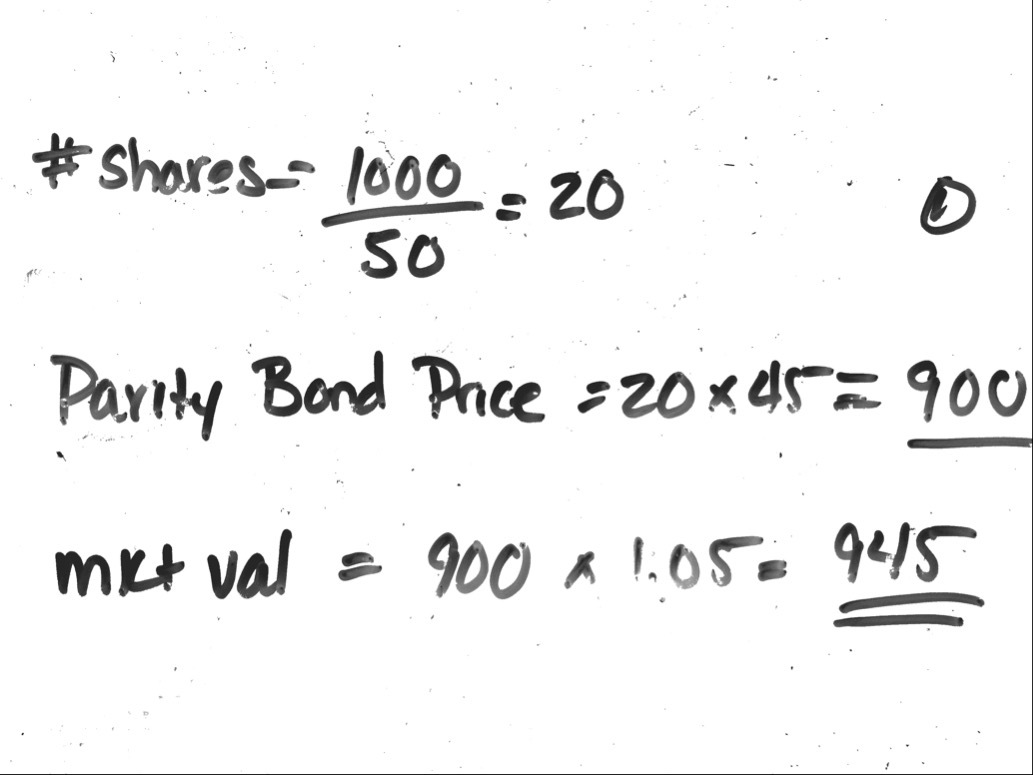 # Shares = 1000/50 = 20 ①
Parity Bond Price = 20 x 45 = 900
mkt val = 900 x 1.05 = 945